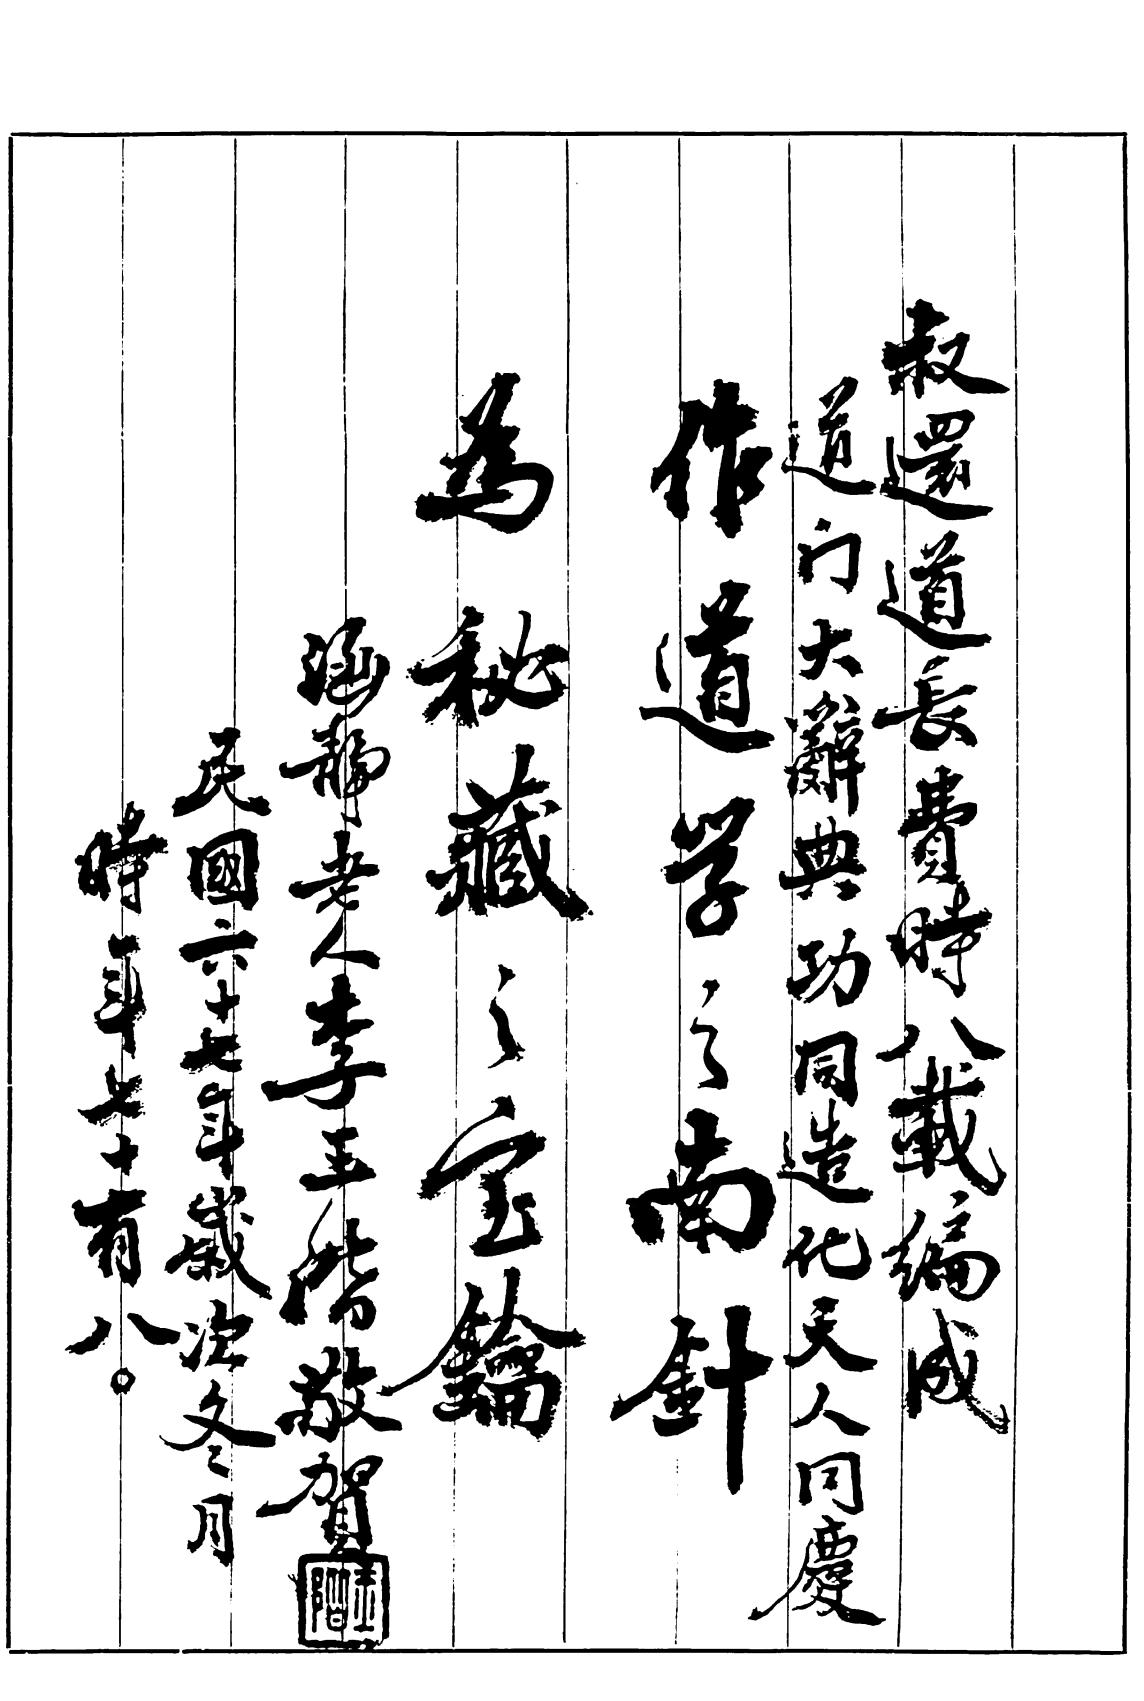 叔還道長費時八載編成
道门大辭典功同造化天人同慶
作道学之南針
為秘藏之宝鑰
涵静老人李玉階敬賀
玉階
民國六十七年歲次冬月
時年七十有八。